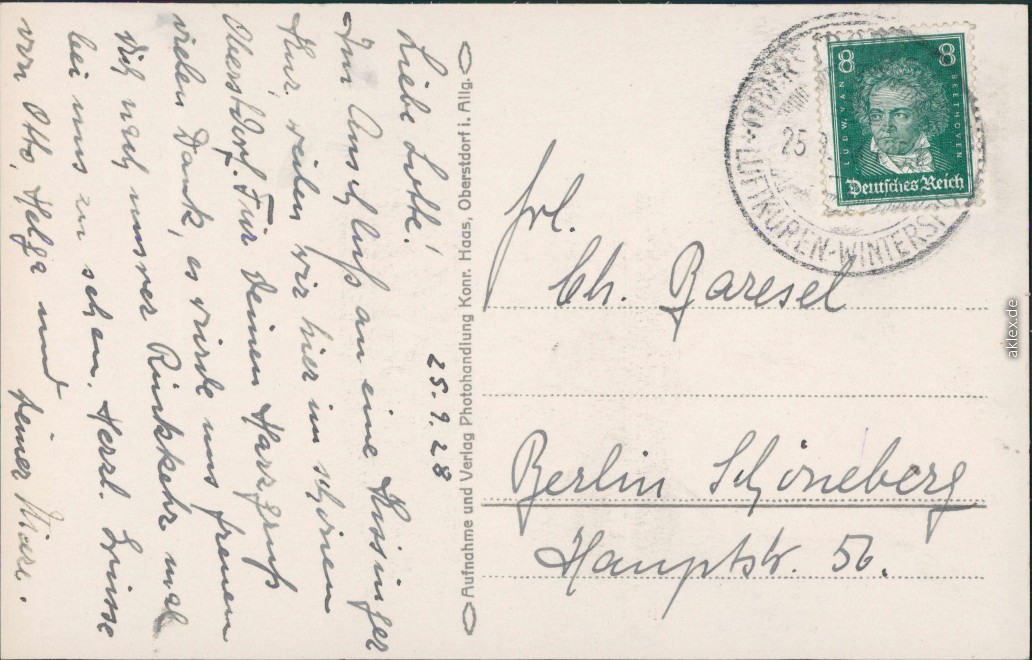 25.9.28
Liebe Lotte!
Im Anschluß an eine Kissinger
Kur, weilen wir hier im schönen
Oberstdorf. Für Deinen Harzgruß
vielen Dank, es würde uns freuen
Dich nach unsrer Rückkehr mal
bei uns zu sehen. Herzl. Grüsse
von Otto, Helga und Deiner
Aufnahme und Verlag Photohandlung Konr. Haas, Oberstdorf i. Allg.
8 8
LUDW. VAN BEETHOVEN
Deutsches Reich
25
LUFTKUREN-WINTERSP
Frl.
Ch. Baresel
Berlin Schöneberg
Hauptstr. 56.
aklex.de